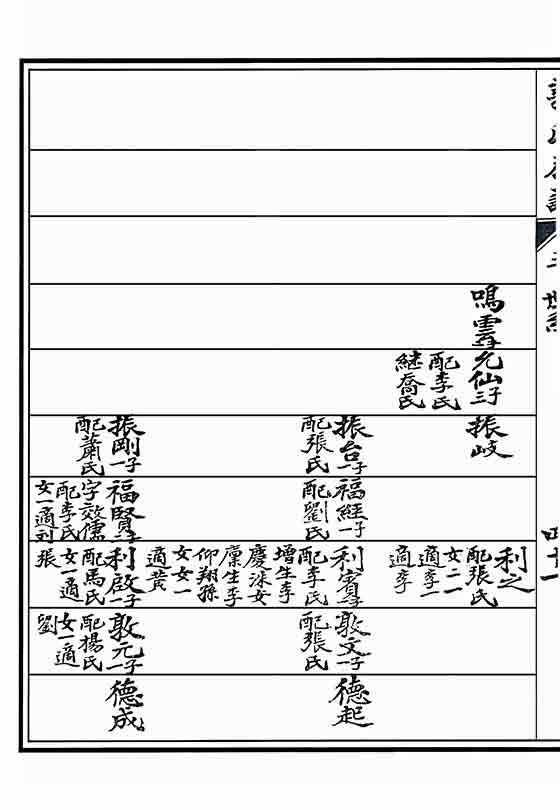 鳴雲
允仙三子
配李氏
継喬氏
振岐
振台一子
配張氏
振剛一子
配蕭氏
福経一子
配劉氏
福賢
字效儒
配李氏
女一適刘
利之
配張氏
女二一
適李一
適李
利賓
配李氏
增生李
慶洣女
廪生李
仰翔孫
女女一
適黄
利啟一子
配馬氏
女一適
張
敦文一子
配張氏
敦元一子
配楊氏
女一適
劉
德起
德成
四十一